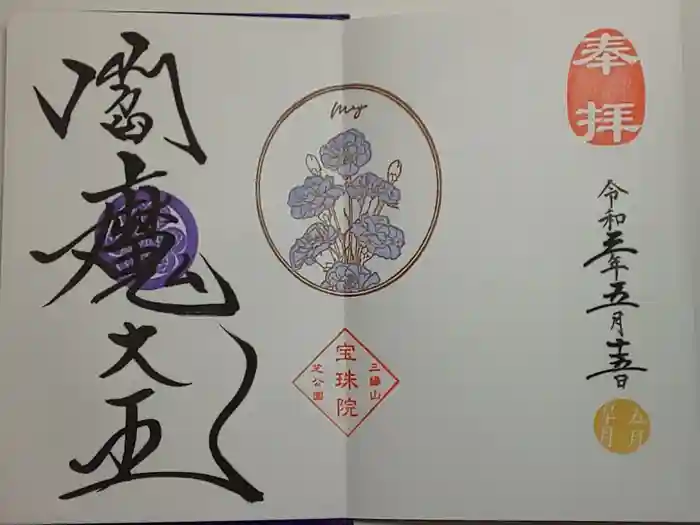 奉拝
令和三年五月十五日
五月
May
三縁山
宝珠院
芝公園
閻魔大王